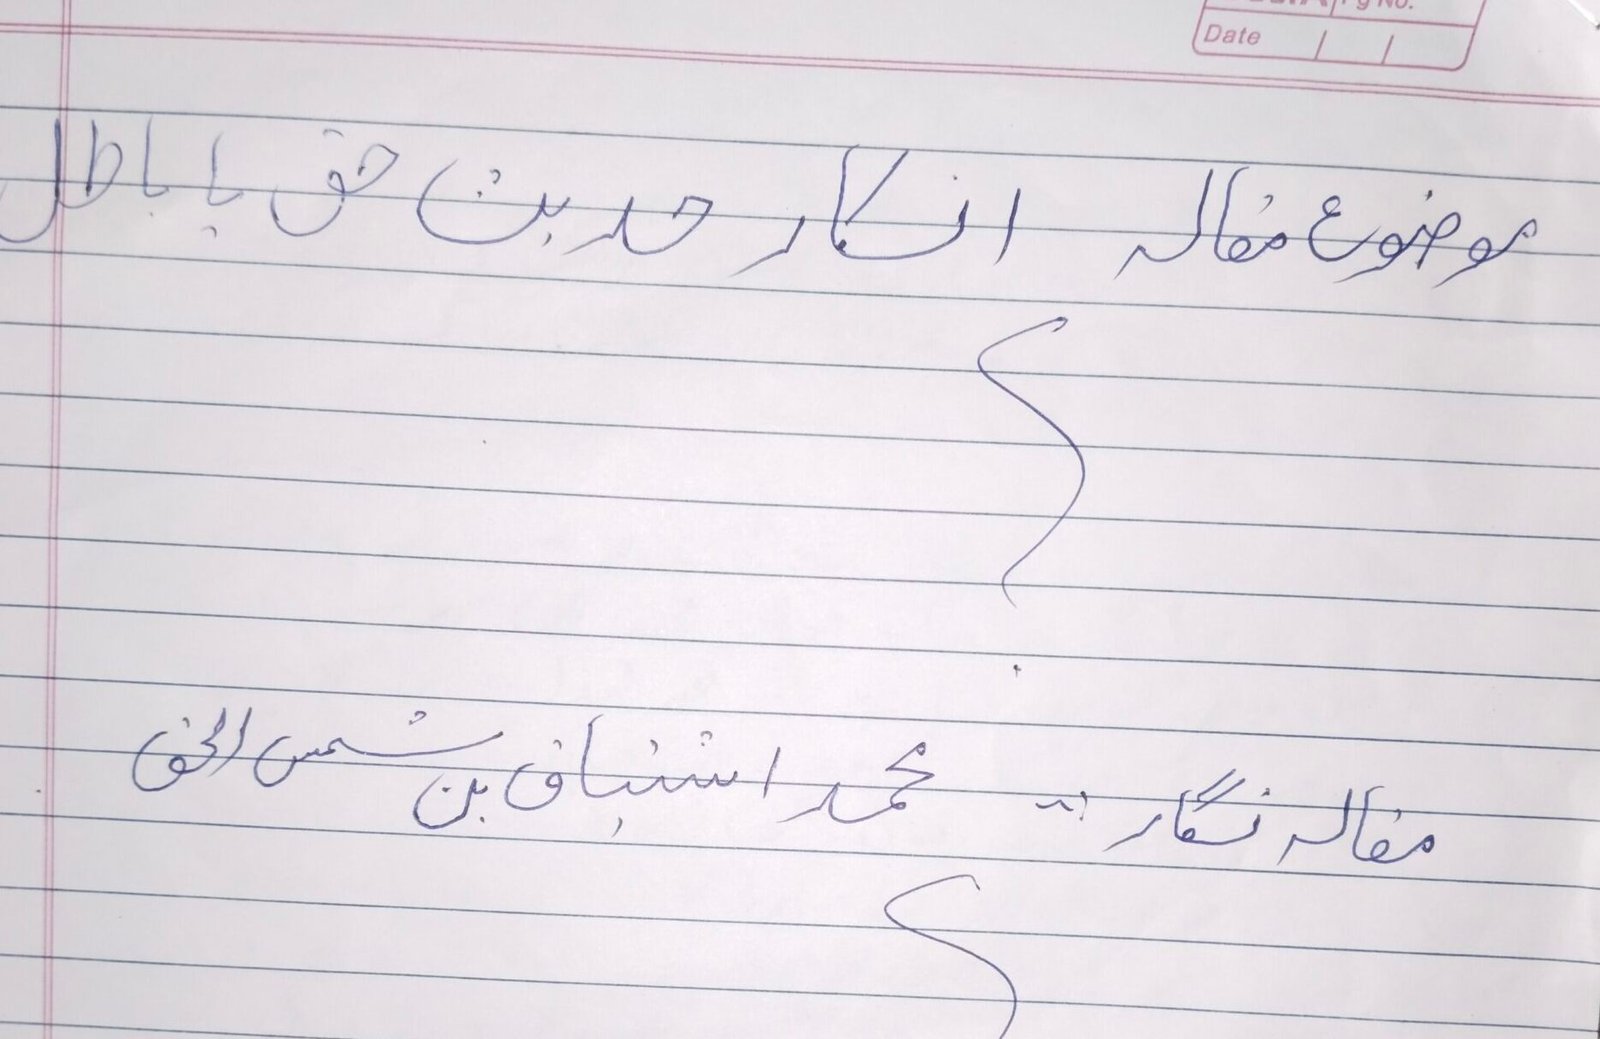 Pg No.
Date
موضوع مقالہ انکار حدیث حق یا باطل
مقالہ نگار :- محمد اشتیاق بن شمس الحق